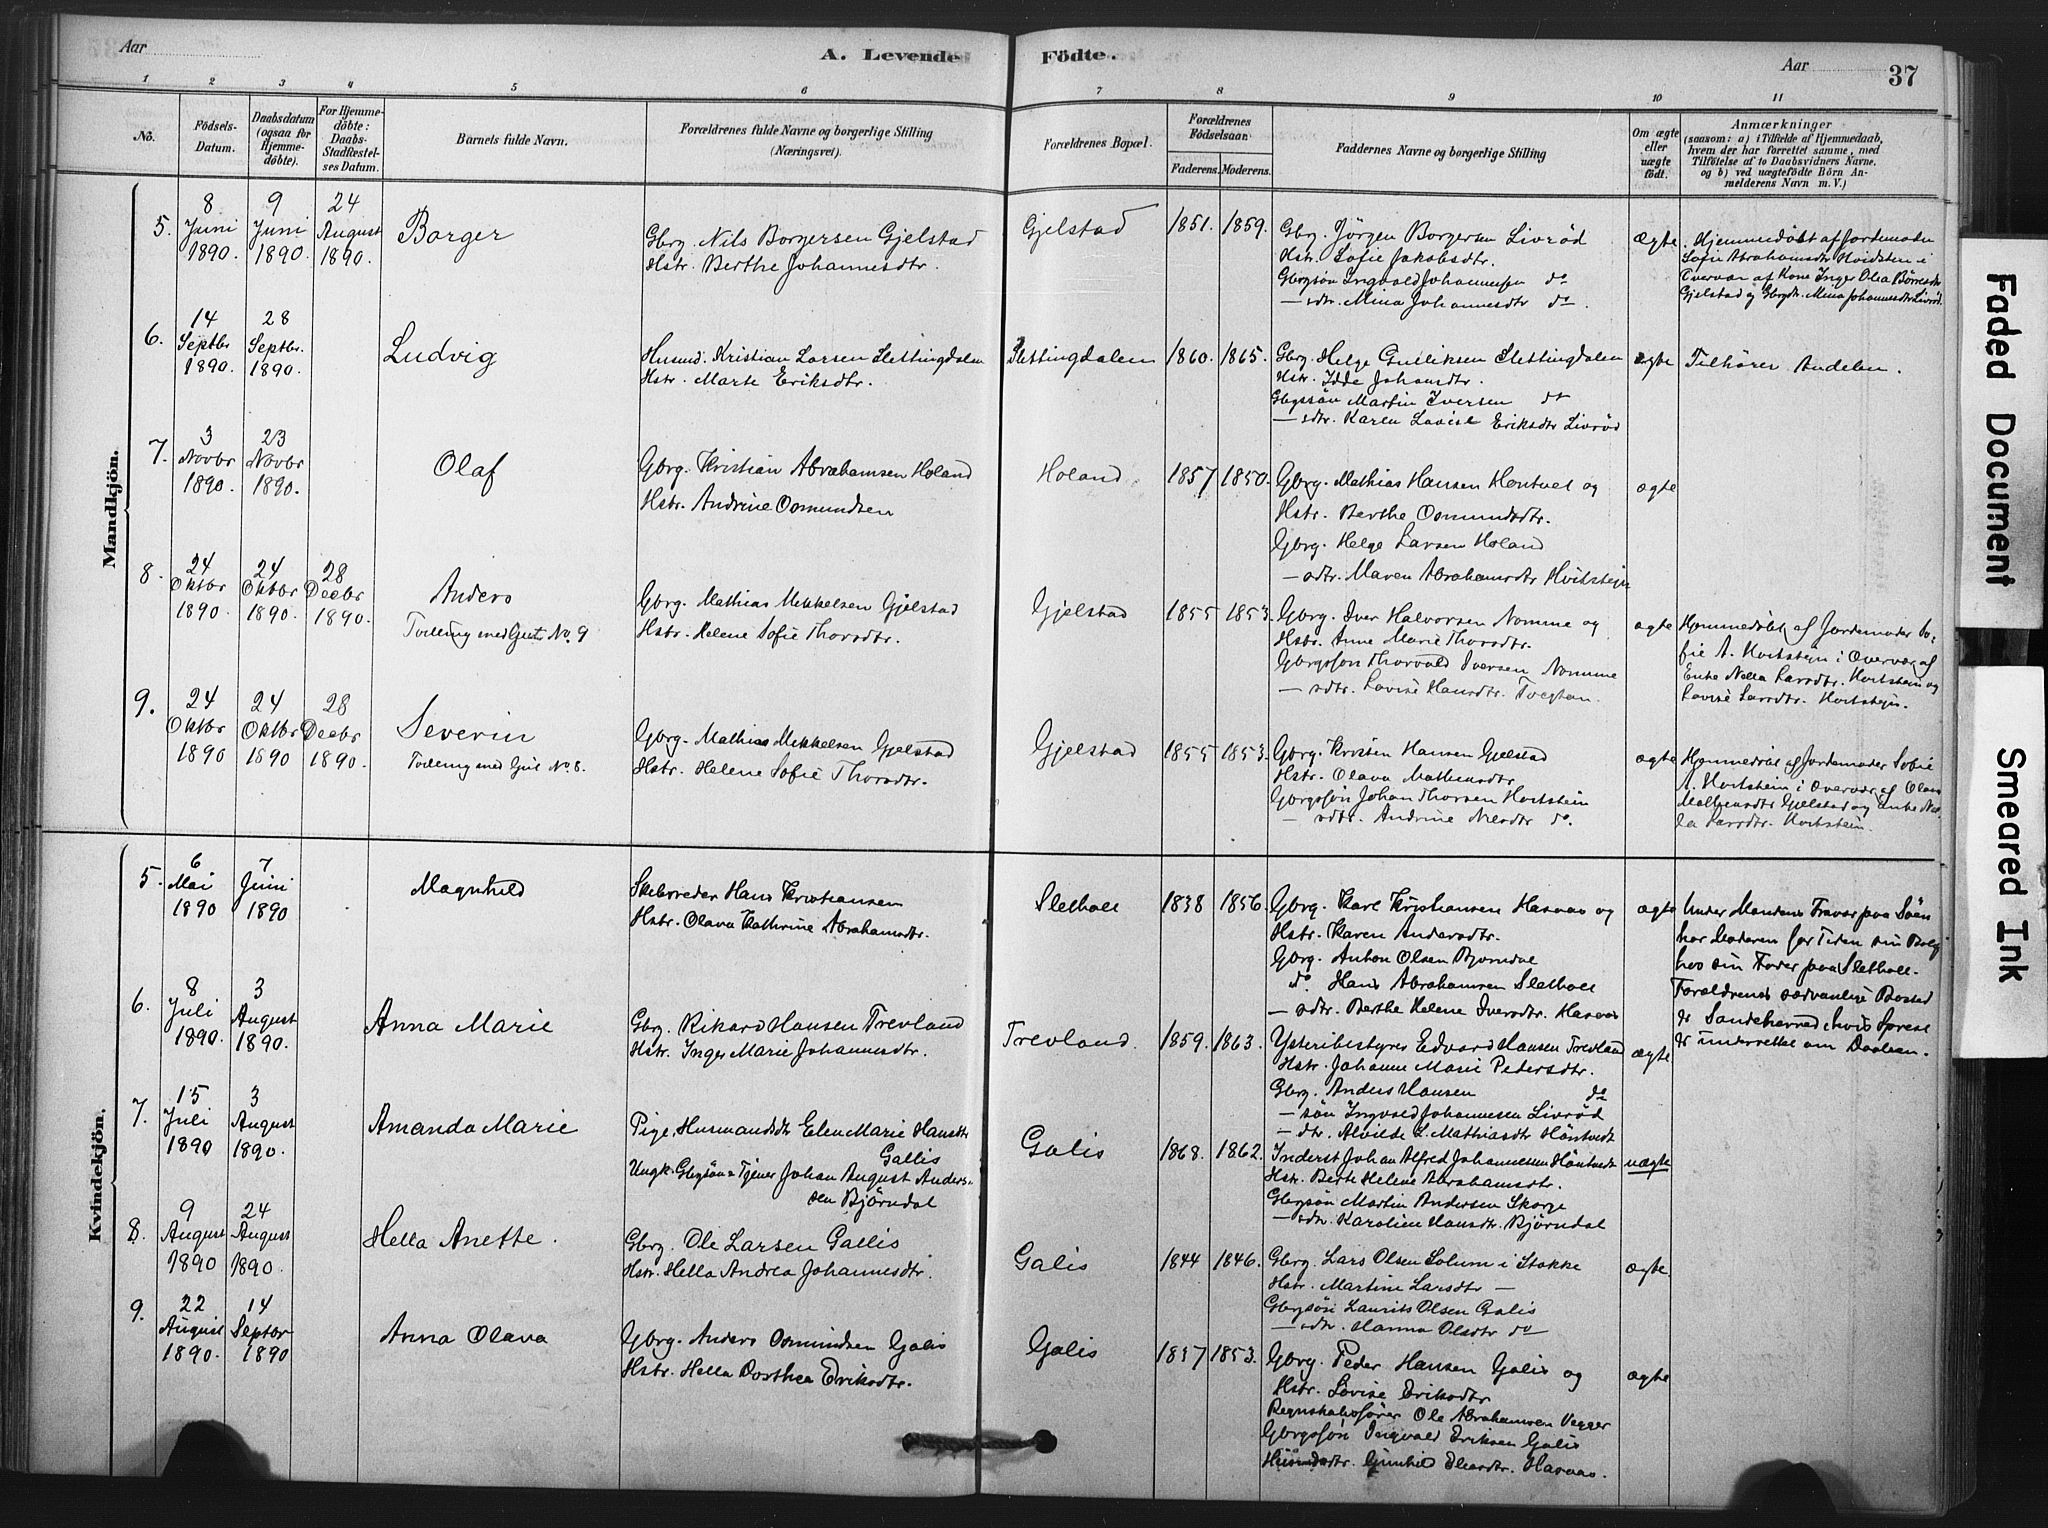 Aar
A. Levende Födte.
Aar
37
1 2 3 4 5 6 7 8 9 10 11
No.
Födsels-Datum.
Daabsdatum (ogsaa for Hjemme-döbte).
For Hjemme-döbte: Daabs-Stadfæstel-ses Datum.
Barnets fulde Navn.
Forældrenes fulde Navne og borgerlige Stilling (Næringsvei).
Forældrenes Bopæl.
Forældrenes Födselsaar.
Faderens. Moderens.
Faddernes Navne og borgerlige Stilling
Om ægte eller uægte födt.
Anmærkninger
(saasom: a) i Tilfælde af Hjemmedaab,
hvem der har forrettet samme, med
Tilföielse af to Daabsvidners Navne,
og b) ved uægtefödte Börn An-
melderens Navn m. V.)
Mandkjön.
5. 8 Juni 1890. 9 Juni 1890. 24 August 1890.
Borger
Gbrg. Nils Borgersen Gjelstad
Hstr. Berthe Johannesdtr.
Gjelstad 1851. 1859.
Gbrg. Jörgen Borgersen Livröd
Hstr. Sofie Jakobsdtr.
Gbrgsön Ingvald Johannessen do
— sdtr. Mina Johannesdtr do.
ægte
Hjemmedöbt af Jordemoder
Sofie Abrahamsdtr Hvidsten i
Overvær af Kone Inger Olea Börresdtr
Gjelstad og Gbrgdtr. Mina Johannesdtr Livröd.
6. 14 Septbr 1890. 28 Septbr. 1890.
Ludvig
Husmd. Kristian Larsen Slettingdalen
Hstr. Marte Eriksdtr.
Slettingdalen 1860. 1865.
Gbrg. Helge Gulliksen Slettingdalen
Hstr. Idde Johansdtr.
Gbrgssön Martin Iversen do
— sdtr. Karen Lovise Eriksdtr Livröd
ægte
Tilhörer Andebu.
7. 3 Novbr 1890. 23 Novbr 1890.
Olaf
Gbrg. Kristian Abrahamsen Holand
Hstr. Andrine Osmundsen
Holand 1857 1850.
Gbrg. Mathias Hansen Hontvet og
Hstr. Berthe Osmundsdtr.
Gbrg. Helge Larsen Holand
— sdtr. Maren Abrahamsdtr Hvitstejn
ægte
8. 24 Oktbr 1890. 24 Oktbr 1890. 28 Decbr 1890.
Anders
Tvilling med Gut No. 9
Gbrg. Mathias Mikkelsen Gjelstad
Hstr. Helene Sofie Thorsdtr.
Gjelstad 1855 1853.
Gbrg. Iver Halvorsen Nomme og
Hstr. Anne Marie Thorsdtr.
Gbrgssön Thorvald Iversen Nomme
— sdtr. Lovise Hansdtr.
ægte
Hjemmedöbt af Jordemoder So-
fie A. Hvitstejn i Overvær af
Enke Nella Larsdtr. Hvitstein og
Lovise Larsdtr. Hvitstejn.
9. 24 Oktbr 1890 24 Oktbr 1890 28 Decbr 1890.
Severin
Tvilling med Gut No. 8.
Gbrg. Mathias Mikkelsen Gjelstad
Hstr. Helene Sofie Thorsdtr.
Gjelstad 1855 1853.
Gbrg. Kristen Hansen Gjelstad
Hstr. Olava Mathisdtr.
Gbrgssön Johan Thorsen Hvitstein
— sdtr. Andrine Nilsdtr do.
ægte
Hjemmedöbt af Jordemoder Sofie
A. Hvitstein i Overvær af Olava
Mathisdtr Gjelstad og Enke Nel-
la Larsdtr. Hvitstein.
Kvindekjön.
5. 6 Mai 1890 7 Juni 1890
Magnhild
Skibsreder Hans Kristiansen
Hstr. Olava Kathrine Abrahamsdtr.
Sletholt 1838 1856.
Gbrg. Karl Kristiansen Hasaas og
Hstr. Karen Andersdtr.
Gbrg. Anton Olsen Bjorndal
do. Hans Abrahamsen Sletholt
— sdtr. Berthe Helene Iversdtr. Hasaas
ægte
Under Mandens Fravær paa Söen
har Moderen for Tiden sin Bolig
hos sin Fader paa Sletholt.
Forældrenes sædvanlige Bosted
er Sandeherred, hvis Sprest
er underrettet om Daaben.
6. 8 Juli 1890. 3 August 1890.
Anna Marie
Gbrg. Rikard Hansen Trevland
Hstr. Inger Marie Johannesdtr.
Trevland. 1859. 1863.
Ysteribestyrer Edvard Hansen Trevland
Hstr. Johanne Marie Pedersdtr.
Gbrg. Anders Hansen do
— sön Ingvald Johannesen Livröd
— dtr. Alvilde L. Mathiasdtr Höntvedt
ægte
7. 15 Juli 1890 3 August 1890.
Amanda Marie
Pige, Husmandsdtr Elen Marie Hansdtr
Gallis
Ungk. Gbrgsön & Tjener Johan August Anders-
sen Björndal
Galis 1868. 1862.
Inderst Johan Alfred Johannessen Höntvedt
Hstr. Berte Helene Abrahamsdtr.
Gbrgsön Martin Andersen Skorge
— sdtr. Karoline Hansdtr. Björndal
uægte
8. 9 August 1890 24 August 1890.
Hella Anette.
Gbrg. Ole Larsen Gallis
Hstr. Hella Andrea Johannesdtr.
Galis 1844 1846.
Gbrg. Lars Olsen Solum i Stokke
Hstr. Martine Larsdtr —
Gbrgsön Laurits Olsen Galis
— sdtr. Hanna Olsdtr do
ægte
9. 22 August 1890. 14 Septbr 1890
Anna Olava
Gbrg. Anders Osmundsen Galis
Hstr. Hella Dorthea Eriksdtr.
Galis 1853.
Gbrg. Peder Hansen Galis og
Hstr. Lovise Eriksdtr
Regnskabsförer Ole Abrahamsen Vegger
Gbrgssön Ingvald Eriksen Galis
Husmdsdtr. Gunhild Hasaas.
ægte
Faded Document
Smeared Ink